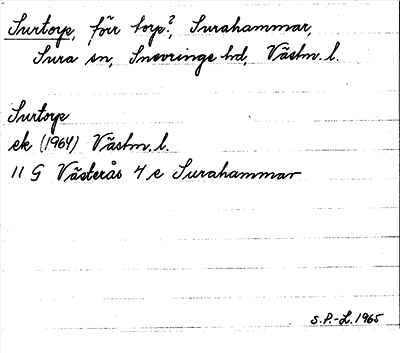 Surtorp, förr torp?, Surahammar,
Sura sn, Snevringe hd, Västm. l.
Surtorp
ek (1964) Västm. l.
11 G Västerås 4 e Surahammar
S.P.-L. 1965